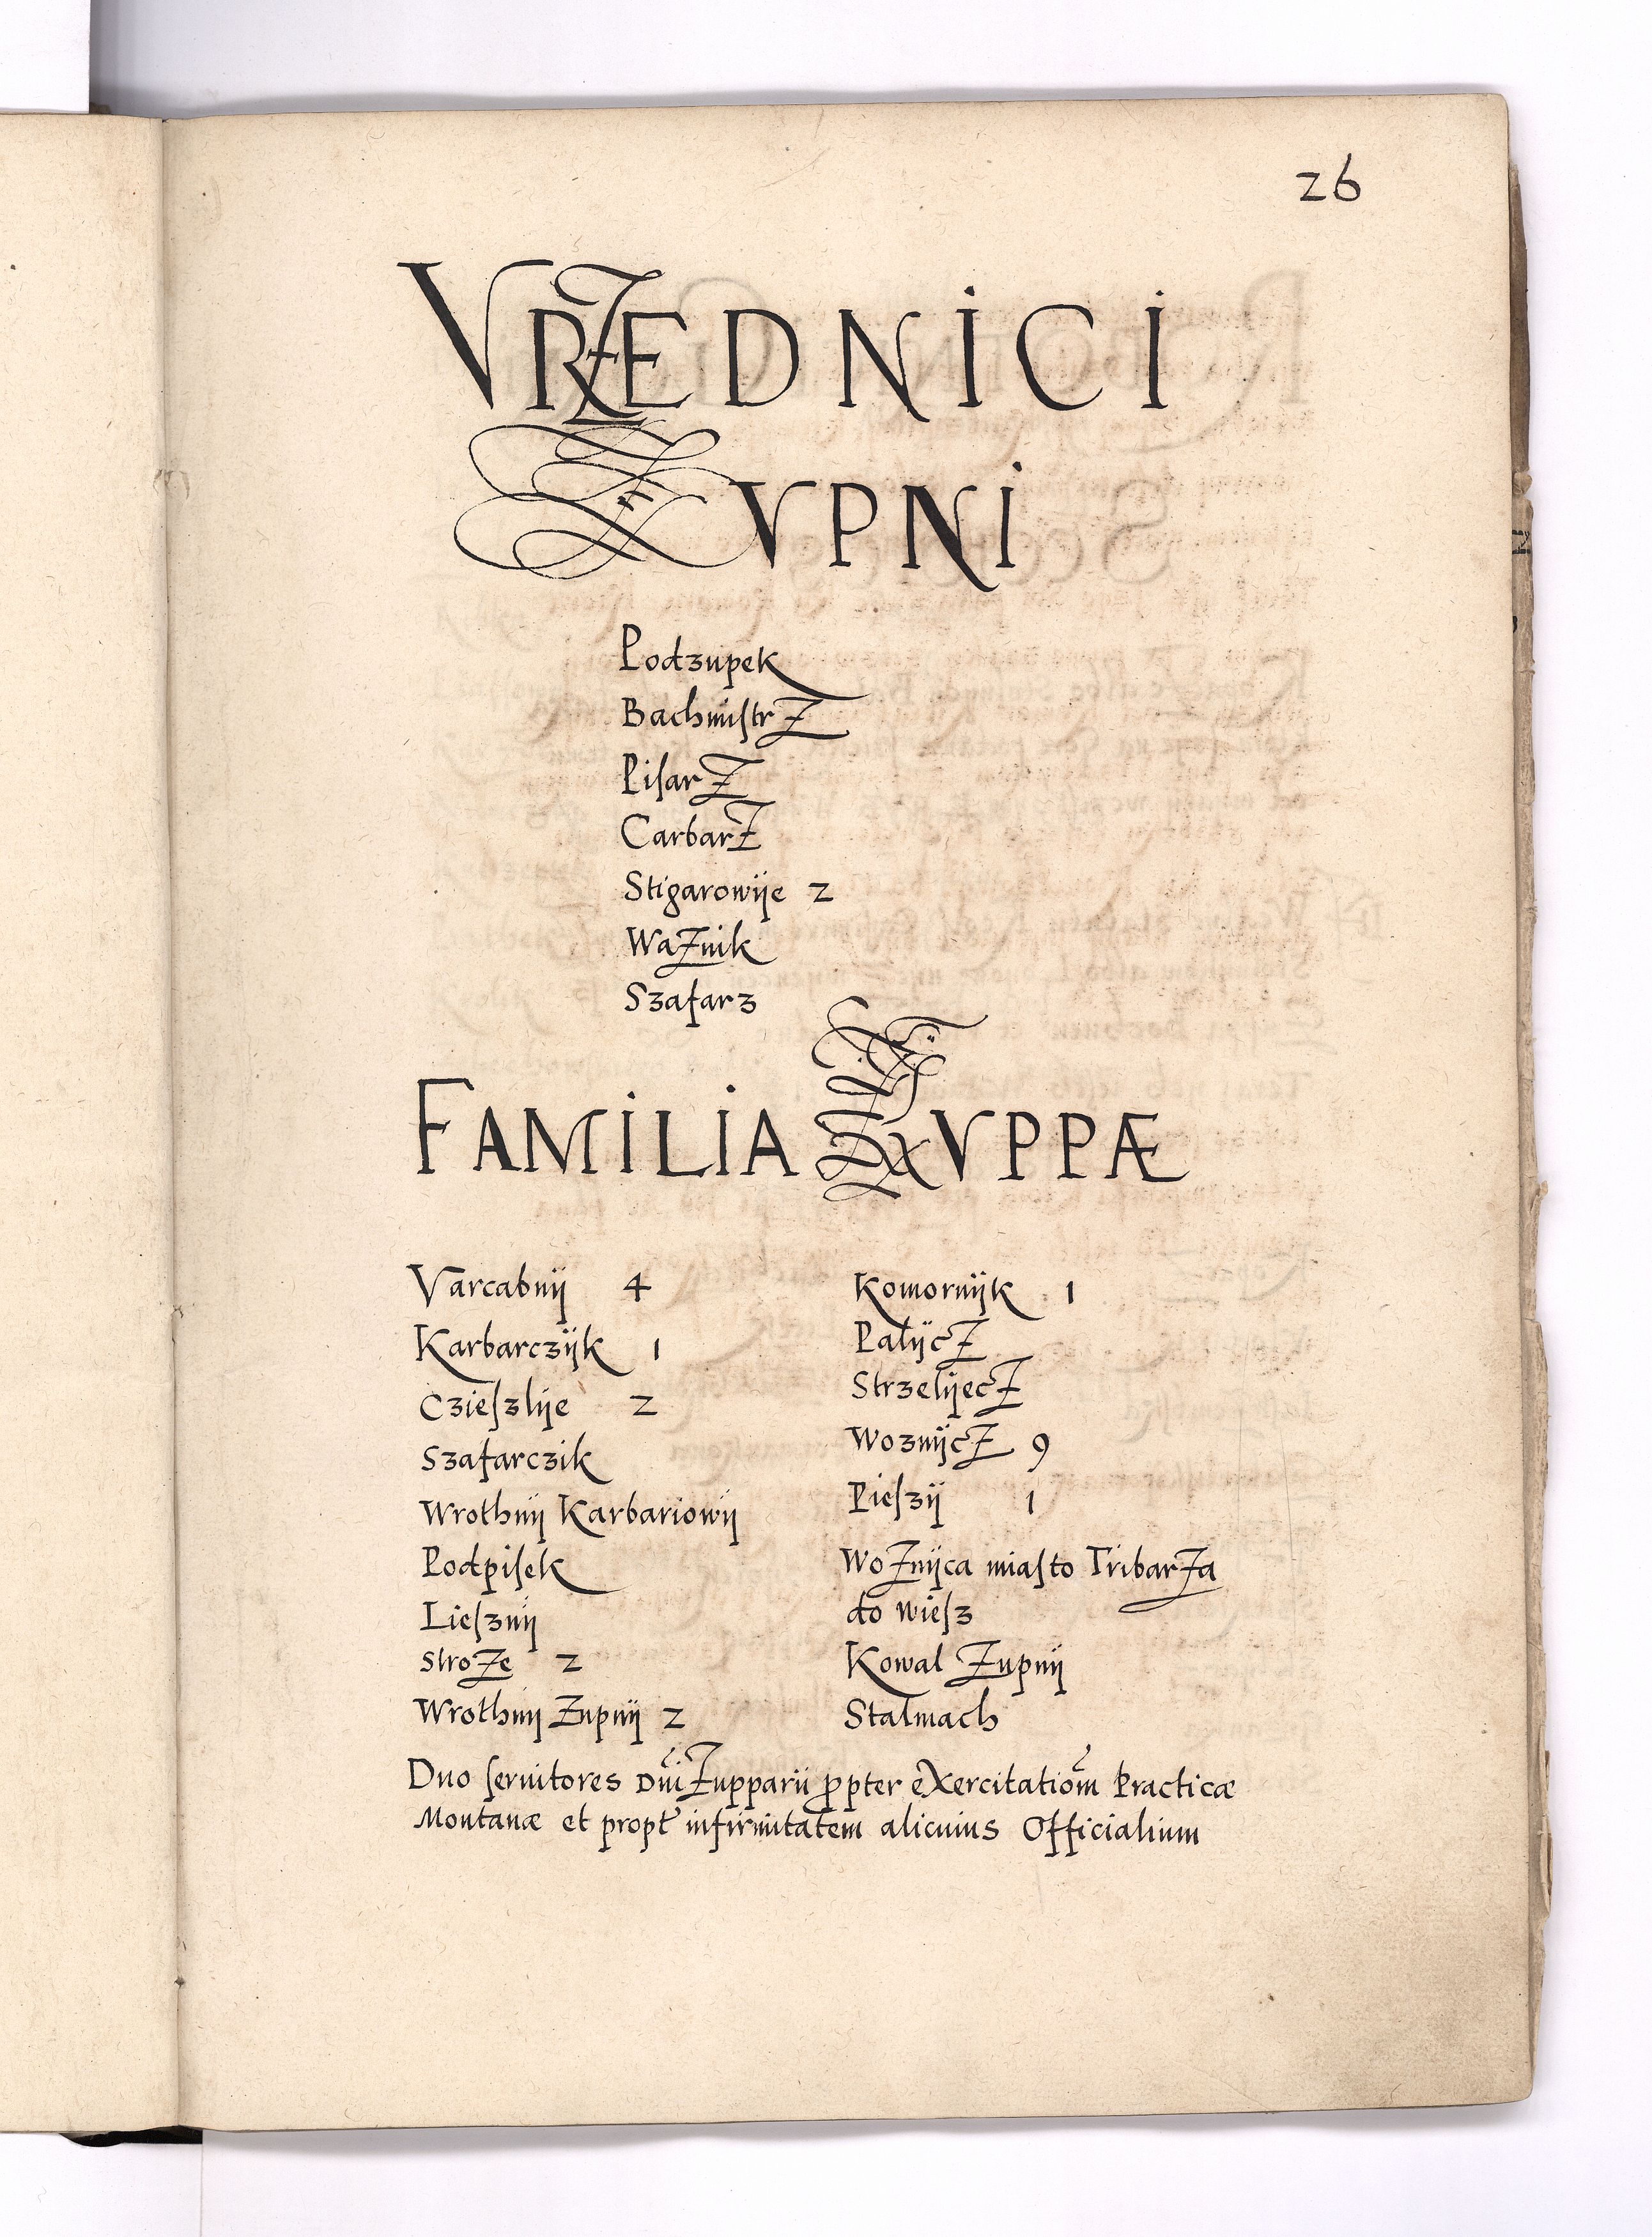 26
VRZEDNICI
ZVPNI
Podzupek
BachmistrZ
PisarZ
CarbarZ
Stigarowije 2
WaZnik
Szafarz
FAMILIA ZVPPÆ
Varcabnij 4
Karbarczijk 1
Czieszlije 2
Szafarczik
Wrothnij Karbariowij
Podpisek
Liesznij
StroZe 2
Wrothnij Zupnij 2
Komornijk 1
PalijcZ
StrzelijecZ
WoznijcZ 9
Pieszij 1
WoZnijca miasto TribarZa
do wiesz
Kowal Zupnij
Stalmach
Duo seruitores Dni Zupparii ꝓpter eXercitatiom̃ Practicæ
Montanæ et propt̃ infirmitatem alicuius Officialium